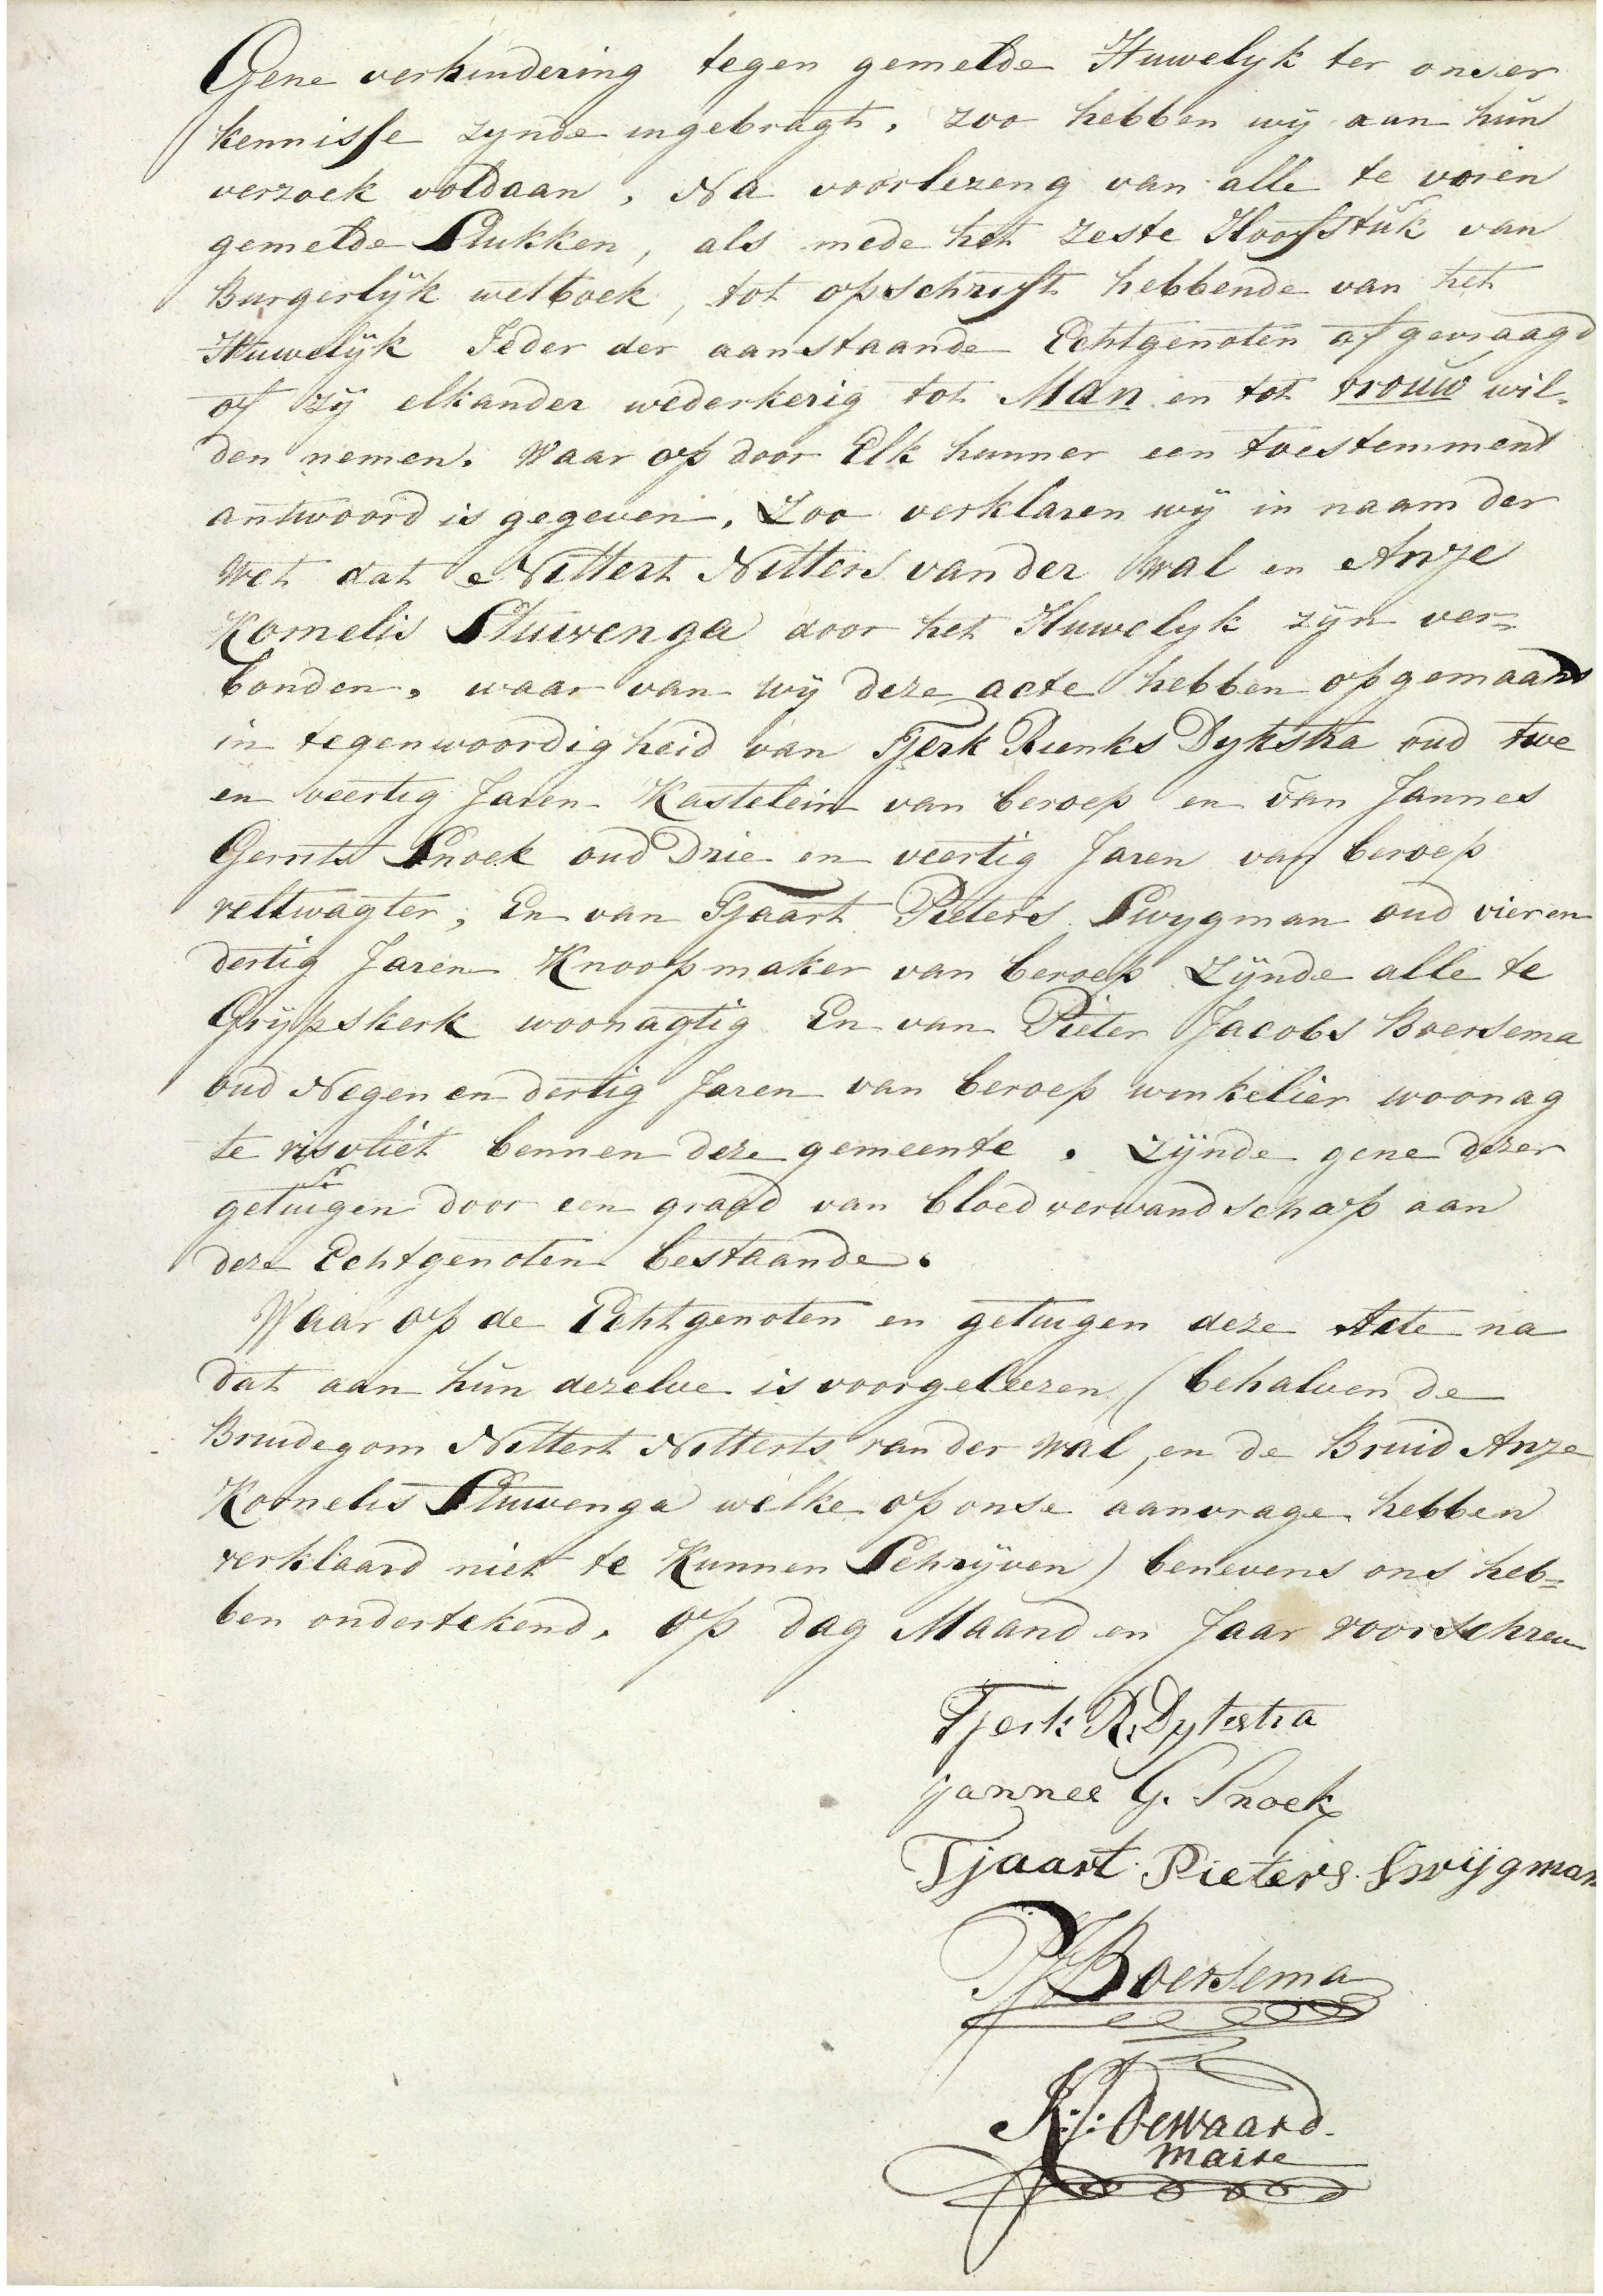 Gene verhindering tegen gemelde Huwelyk ter onser
kennisse zynde ingebragt, zoo hebben wij aan hun
verzoek voldaan, Na voorlezeng van alle te voren
gemelde Stukken, als mede het zeste Hoofstuk van
Burgerlijk wetboek, tot opschrift hebbende van het
Huwelijk Ieder der aanstaande Echtgenoten af gevraagd
of zij elkander wederkerig tot Man en tot vrouw wil-
den nemen. Waar op door Elk hunner een toestemment
antwoord is gegeven, Zoo verklaren wij in naam der
Wet dat Nittert Nitters van der Wal en Anje
Kornelis Stuivenga door het Huwelyk zijn ver=
bonden, waar van wij deze acte hebben opgemaakt
in tegenwoordigheid van Tjerk Rienks Dykstra oud twe
en veertig Jaren Kastelein van beroep en van Jannes
Gerrits Snoek oud Drie en veertig Jaren van beroep
veltwagter, En van Tjaart Pieters Swygman oud vier en
dertig Jaren Knoopmaker van beroep Zijnde alle te
Grijpskerk woonagtig En van Pieter Jacobs Boersema
oud Negen en dertig Jaren van beroep winkelier woonag
te visvliet bennen deze gemeente. Zijnde gene dezer
getuigen door een graad van bloedverwandschap aan
deze Echtgenoten bestaande.
Waar op de Echtgenoten en getuigen deze Acte na
dat aan hun dezelve is voorgeleezen (behalven de
Bruidegom Nittert Nitterts van der Wal, en de Bruid Anje
Kornelis Stuivenga welke op onse aanvrage hebben
verklaard niet te Kunnen Schrijven) benevens ons heb=
ben ondertekend, op dag Maand en Jaar voorschreven
Tjerk R. Dykstra
Jannes G. Snoek
Tjaart Pieters Swijgman
PJ Boersema
K: J: Dewaard
Maire